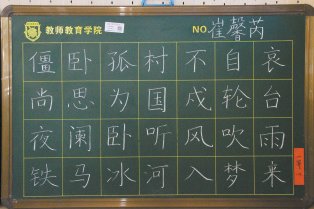 教师教育学院 NO.崔馨芮
僵卧孤村不自哀
尚思为国戍轮台
夜阑卧听风吹雨
铁马冰河入梦来